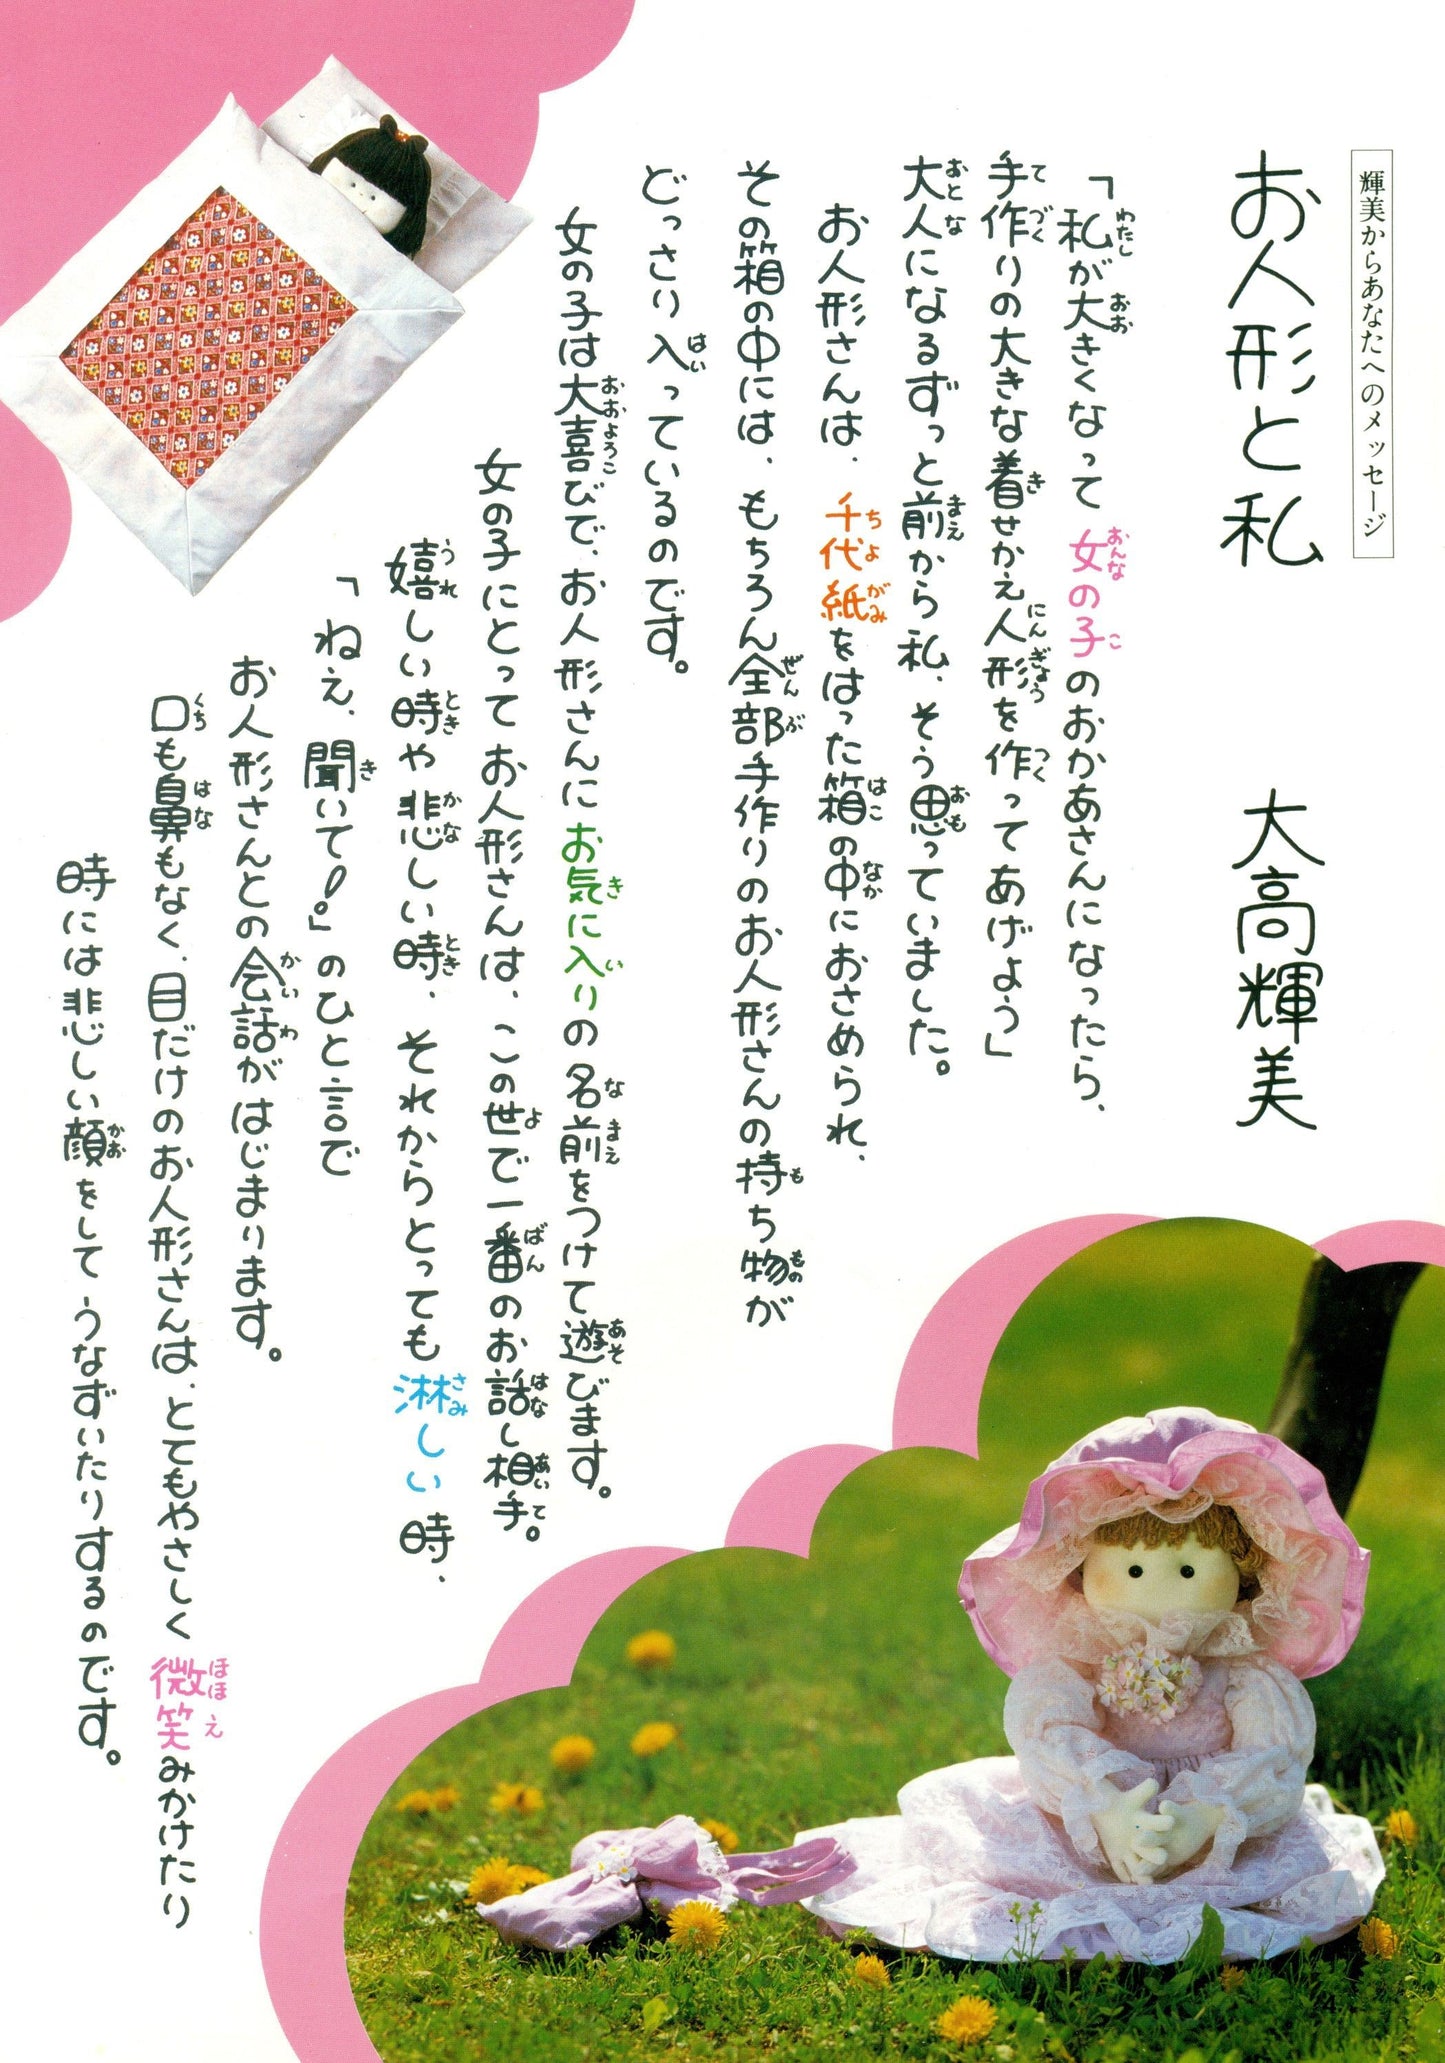 輝美からあなたへのメッセージ
お人形と私　大高輝美
「私が大きくなって 女の子のおかあさんになったら、
手作りの大きな着せかえ人形を作ってあげよう」
大人になるずっと前から私、そう思っていました。
お人形さんは、千代紙をはった箱の中におさめられ、
その箱の中には、もちろん全部手作りのお人形さんの持ち物が
どっさり入っているのです。
女の子は大喜びで、お人形さんにお気に入りの名前をつけて遊びます。
女の子にとってお人形さんは、この世で一番のお話し相手。
嬉しい時や悲しい時、それからとっても淋しい時、
「ねえ、聞いて!。」のひと言で
お人形さんとの会話がはじまります。
口も鼻もなく、目だけのお人形さんは、とてもやさしく微笑みかけたり
時には悲しい顔をしてうなずいたりするのです。
4